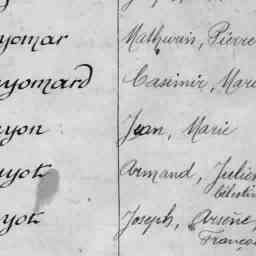 yomar Mathurin, Pierre
yomard Casimir, Mari
yon Jean, Marie
yot Armand, Julien
Célestin
yot Joseph, Arsène,
Françoi